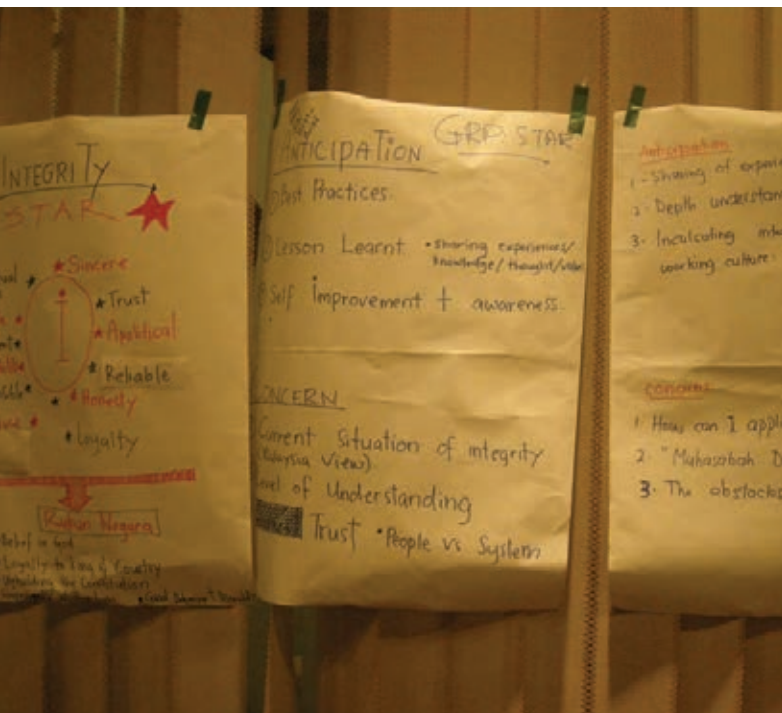 INTEGRITY
STAR
Sincere
Trust
Apolitical
Reliable
Honesty
Loyalty
I
Rukun Negara
Belief in God
Loyalty to King & Country
Upholding the Constitution
GRP: STAR
ANTICIPATION
Best Practices.
Lesson Learnt • Sharing experiences/
knowledge/thought/
Self improvement + awareness.
CONCERN
Current situation of integrity
(Malaysia View).
Level of Understanding
Trust • People vs System
Anticipation
1 - Sharing of experie
2 - Depth understan
3 - Inculcating
working culture.
concerns
1 How can I appl
2 "Muhasabah D
3. The obstacles